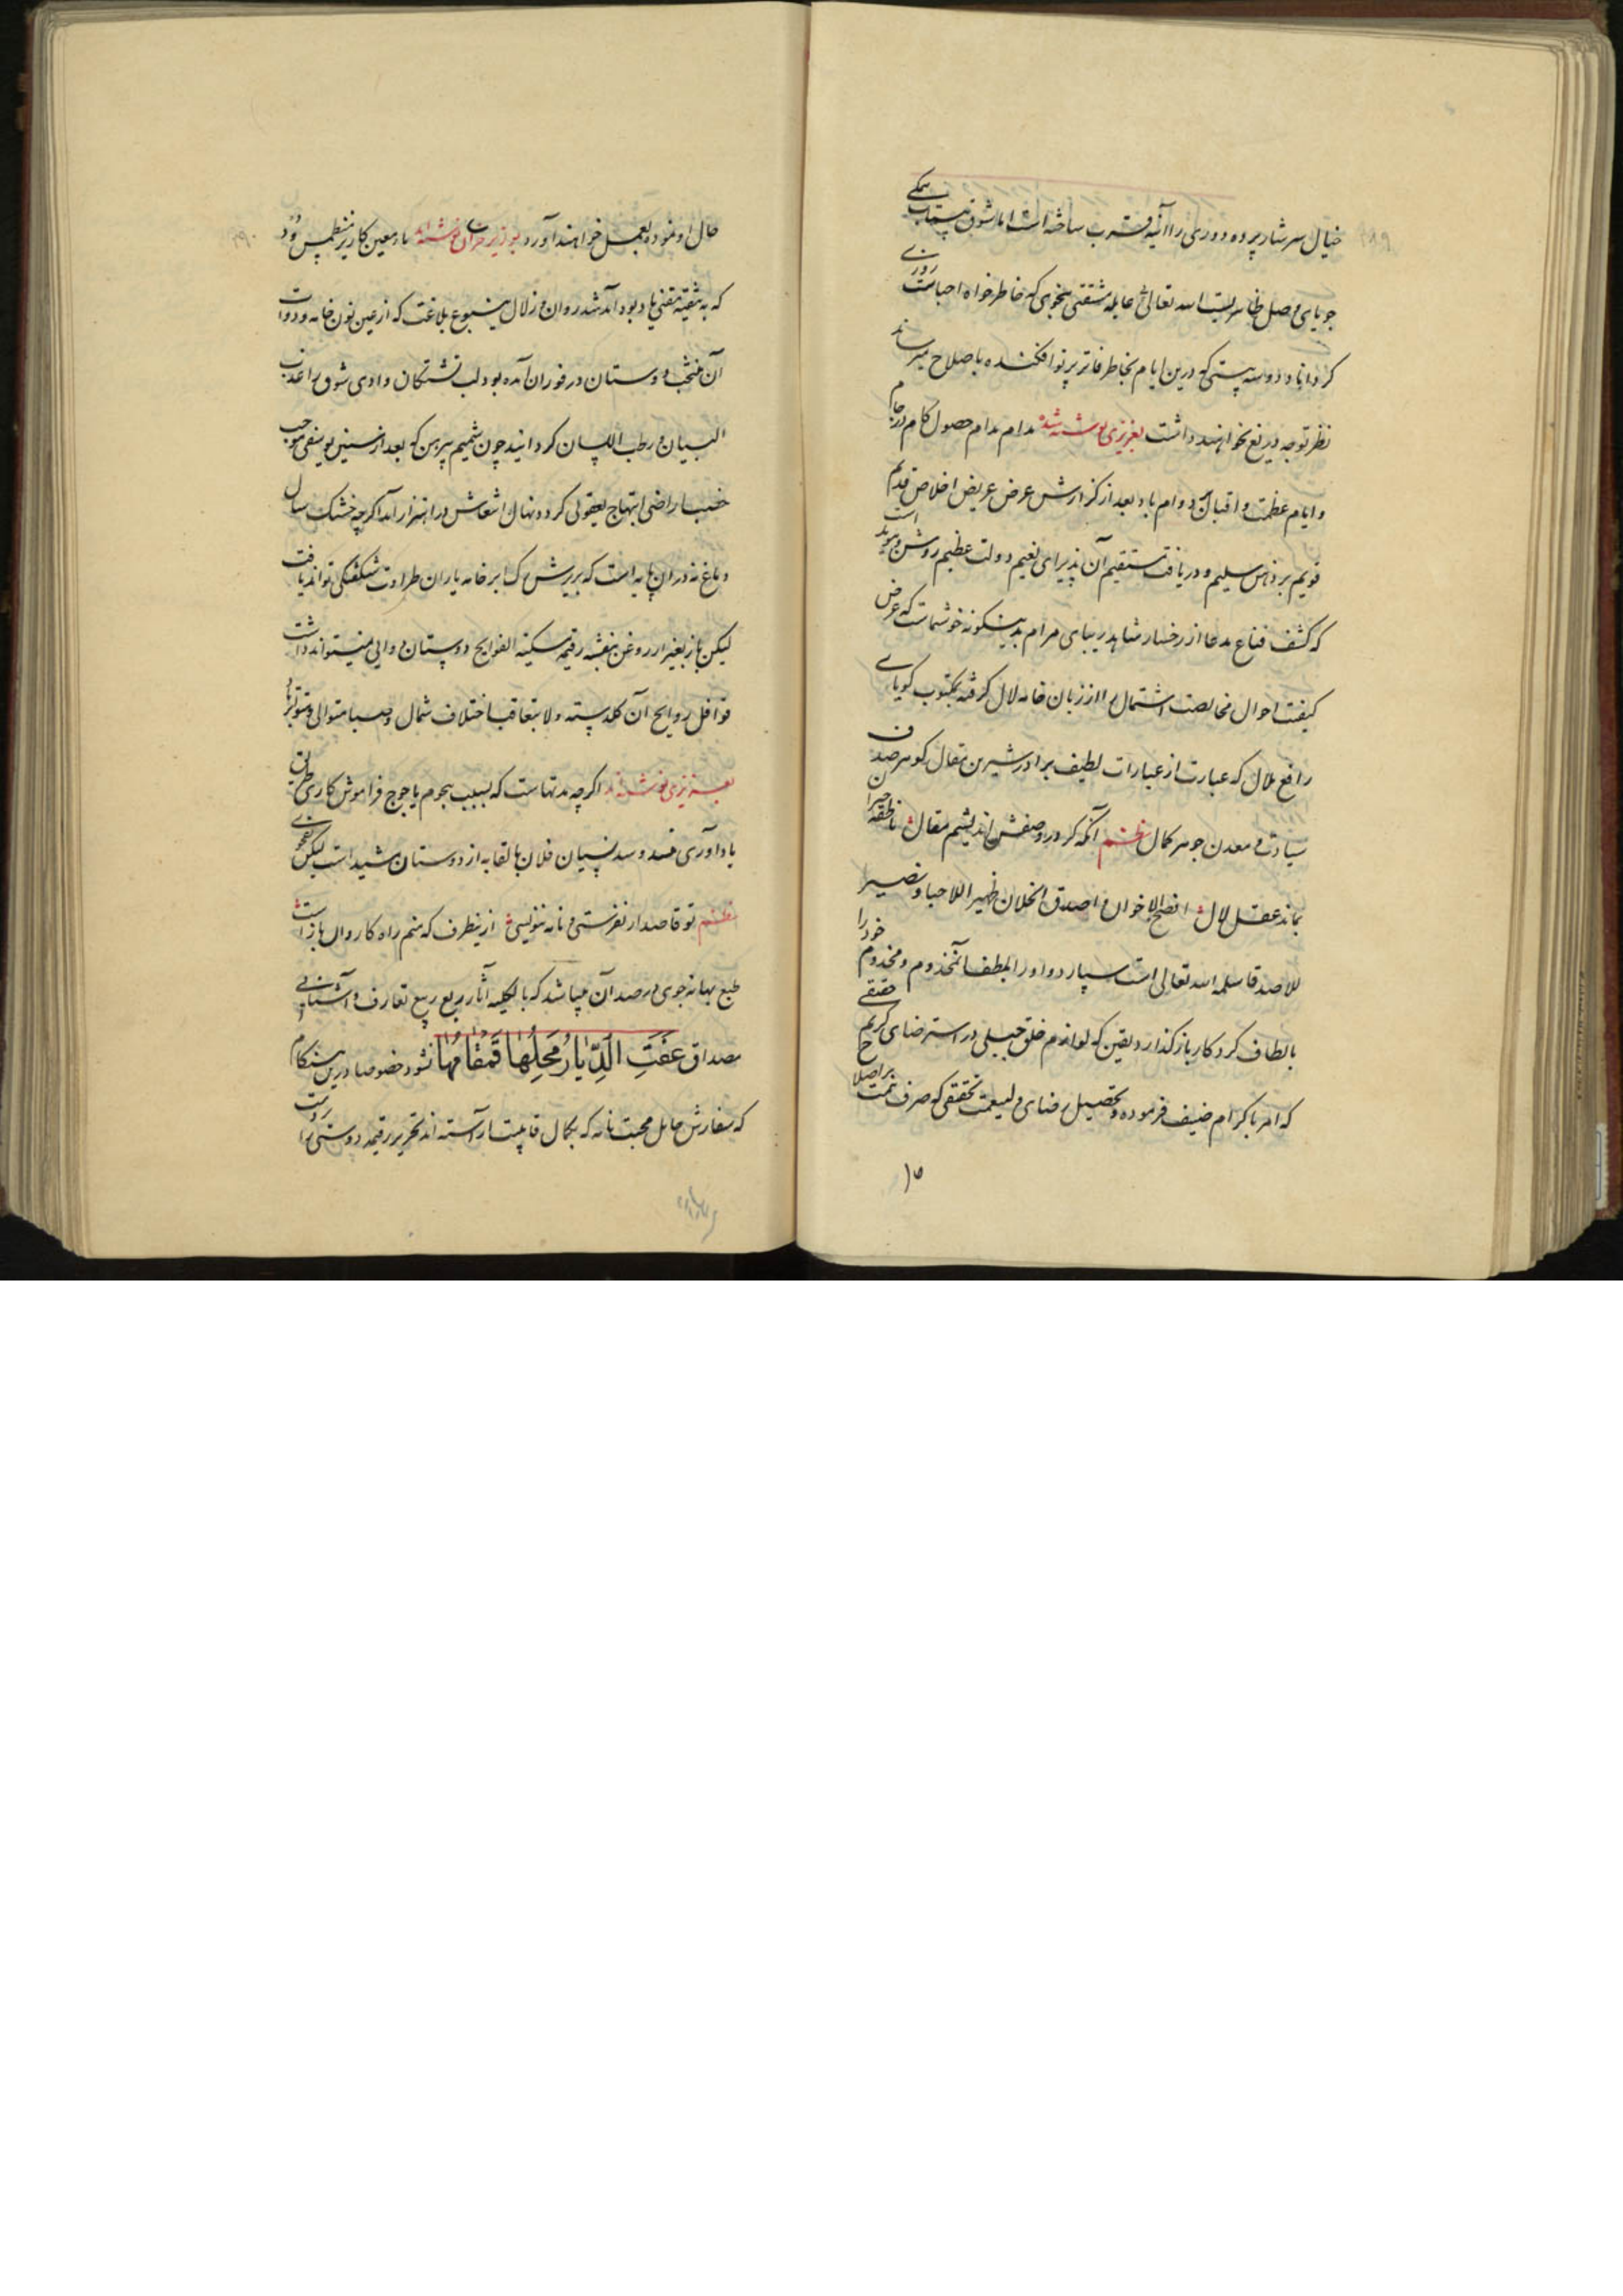 خیال سرشار پرده دوری را آئینه قرب ساخته است اما شوق
جویای وصل ظاهریست الله تعالی عالمه مشتقی بنحوی که خاطرخواه احباست روزی
کرداناد و دوسه بیتی که درین ایام بخاطر فاتر پرتو افکنده باصلاح میرساند
نظر توجه دریغ نخواهند داشت بعزیزی نوشته شد مدام مدام حصول کام در جام
و ایام عظمت و اقبال بر دوام باد بعد از گزارش عرض عریض اخلاص قدیم
قویم بر ذهن سلیم و دریافت مستقیم آن پذیرای نعیم دولت عظیم روشن است
که کشف قناع مدعا از رخسار شاهد زیبای مرام بدینگونه خوشنماست که عرض
کیفیت احوال مخالصت اشتمال را از زبان خامه لال گرفته بمکتوب گویای
رافع ملال که عبارت از عبارات لطیف برادر شیرین مقال گوهر صدف
سیادت و معدن جوهر کمال نظم آنکه گر در وصفش اندیشم مقال ناطقه حیران
بماند عقل لال انصح الاخوان و اصدق الخلان ظهیر الاحبا و نصیر
للاصدقا سلمه الله تعالی است سپارد و او را بلطف آنمخدوم و مخدوم خود را
بالطاف کردگار باز گذارد و یقین که لوازم خلق جبیلی در استرضای کریم حقیقی
که امر باکرام ضیف فرموده و تحصیل رضای ولینعمت تحقیقی که صرف همت بر اصلاح
۱۵
حال او نموده بعمل خواهند آورد بوزیر نوشته اند
که به شقیقه متضمن یاد بود آمد شد روان و زلال ینبوع بلاغت که از عین نون خامه و دوات
آن منتخب دوستان در فوران آمده بود لب تشنگان وادی شوق را عذب
البیان و رطب اللسان گردانید چون شمیم پیرهن که بعد از سنین یوسفی موجب
خصب اراضی ابتهاج یعقوبی گردد نهال انتعاش در اهتزاز آمد اگرچه خشک سال
دماغ نه دران پایه است که بریزش یک ابر خامه یاران طراوت شگفتگی تواند یافت
لیکن باز بغیر از روغن بنفشه رقیمه مسکینه الفوایح دوستان دوایی نمیتواند داشت
قوافل روایح آن گلدسته ولا بتعاقب اختلاف شمال و صبا متوالی و متواتر باد
بعزیزی نوشته اند اگرچه مدتهاست که بسبب هجوم یاجوج فراموش کاری طریق
یادآوری مسدود و سد نسیان فلان بالقابه از دوستان مشید است لیکن بفحوی
نظم تو قاصد ار نفرستی و نامه ننویسی ازینطرف که منم راه کاروان باز است
طبع بهانه جوی در صدد آن میباشد که بالکلیه آثار ربع تعارف و آشنایی
مصداق عَفَتِ الدِّیَارُ مَحِلُّهَا فَمُقَامُهَا نشود خصوصا درین هنگام
که سفارش حامل محبت نامه که بکمال قابلیت آراسته اند تحریر رقیمه دوستی را